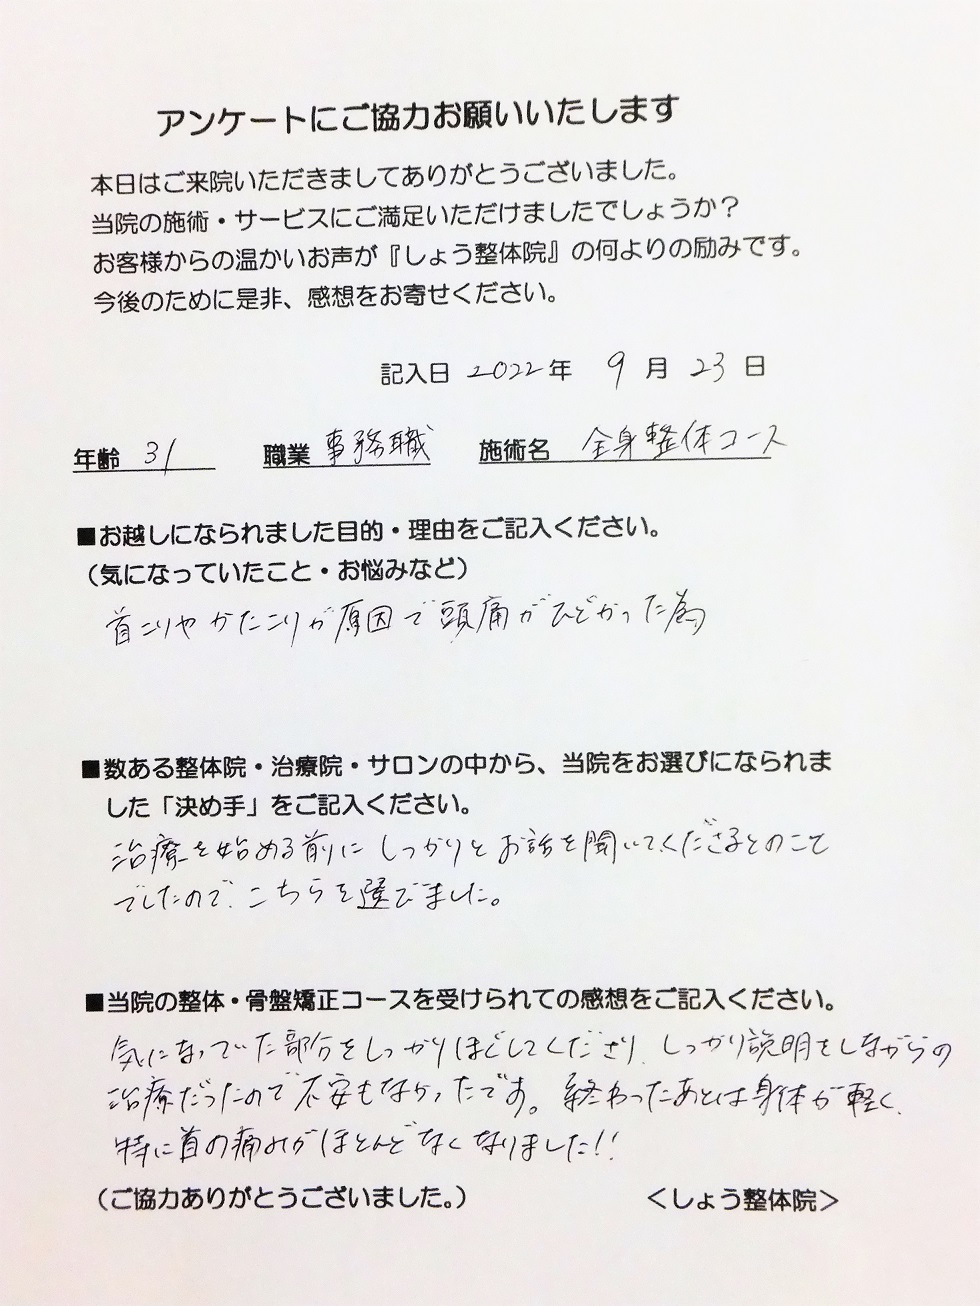 アンケートにご協力お願いいたします
本日はご来院いただきましてありがとうございました。
当院の施術・サービスにご満足いただけましたでしょうか？
お客様からの温かいお声が『しょう整体院』の何よりの励みです。
今後のために是非、感想をお寄せください。
記入日 2022年 9月 23日
年齢 31 職業 事務職 施術名 全身整体コース
■お越しになられました目的・理由をご記入ください。
（気になっていたこと・お悩みなど）
首こりやかたこりが原因で頭痛がひどかった為
■数ある整体院・治療院・サロンの中から、当院をお選びになられま
した「決め手」をご記入ください。
治療を始める前にしっかりとお話を聞いてくださるとのこと
でしたので、こちらを選びました。
■当院の整体・骨盤矯正コースを受けられての感想をご記入ください。
気になってた部分をしっかりほぐしてくださり、しっかり説明をしながらの
治療だったので不安もなかったです。終わったあとは身体が軽く、
特に首の痛みがほとんどなくなりました!!
（ご協力ありがとうございました。） ＜しょう整体院＞